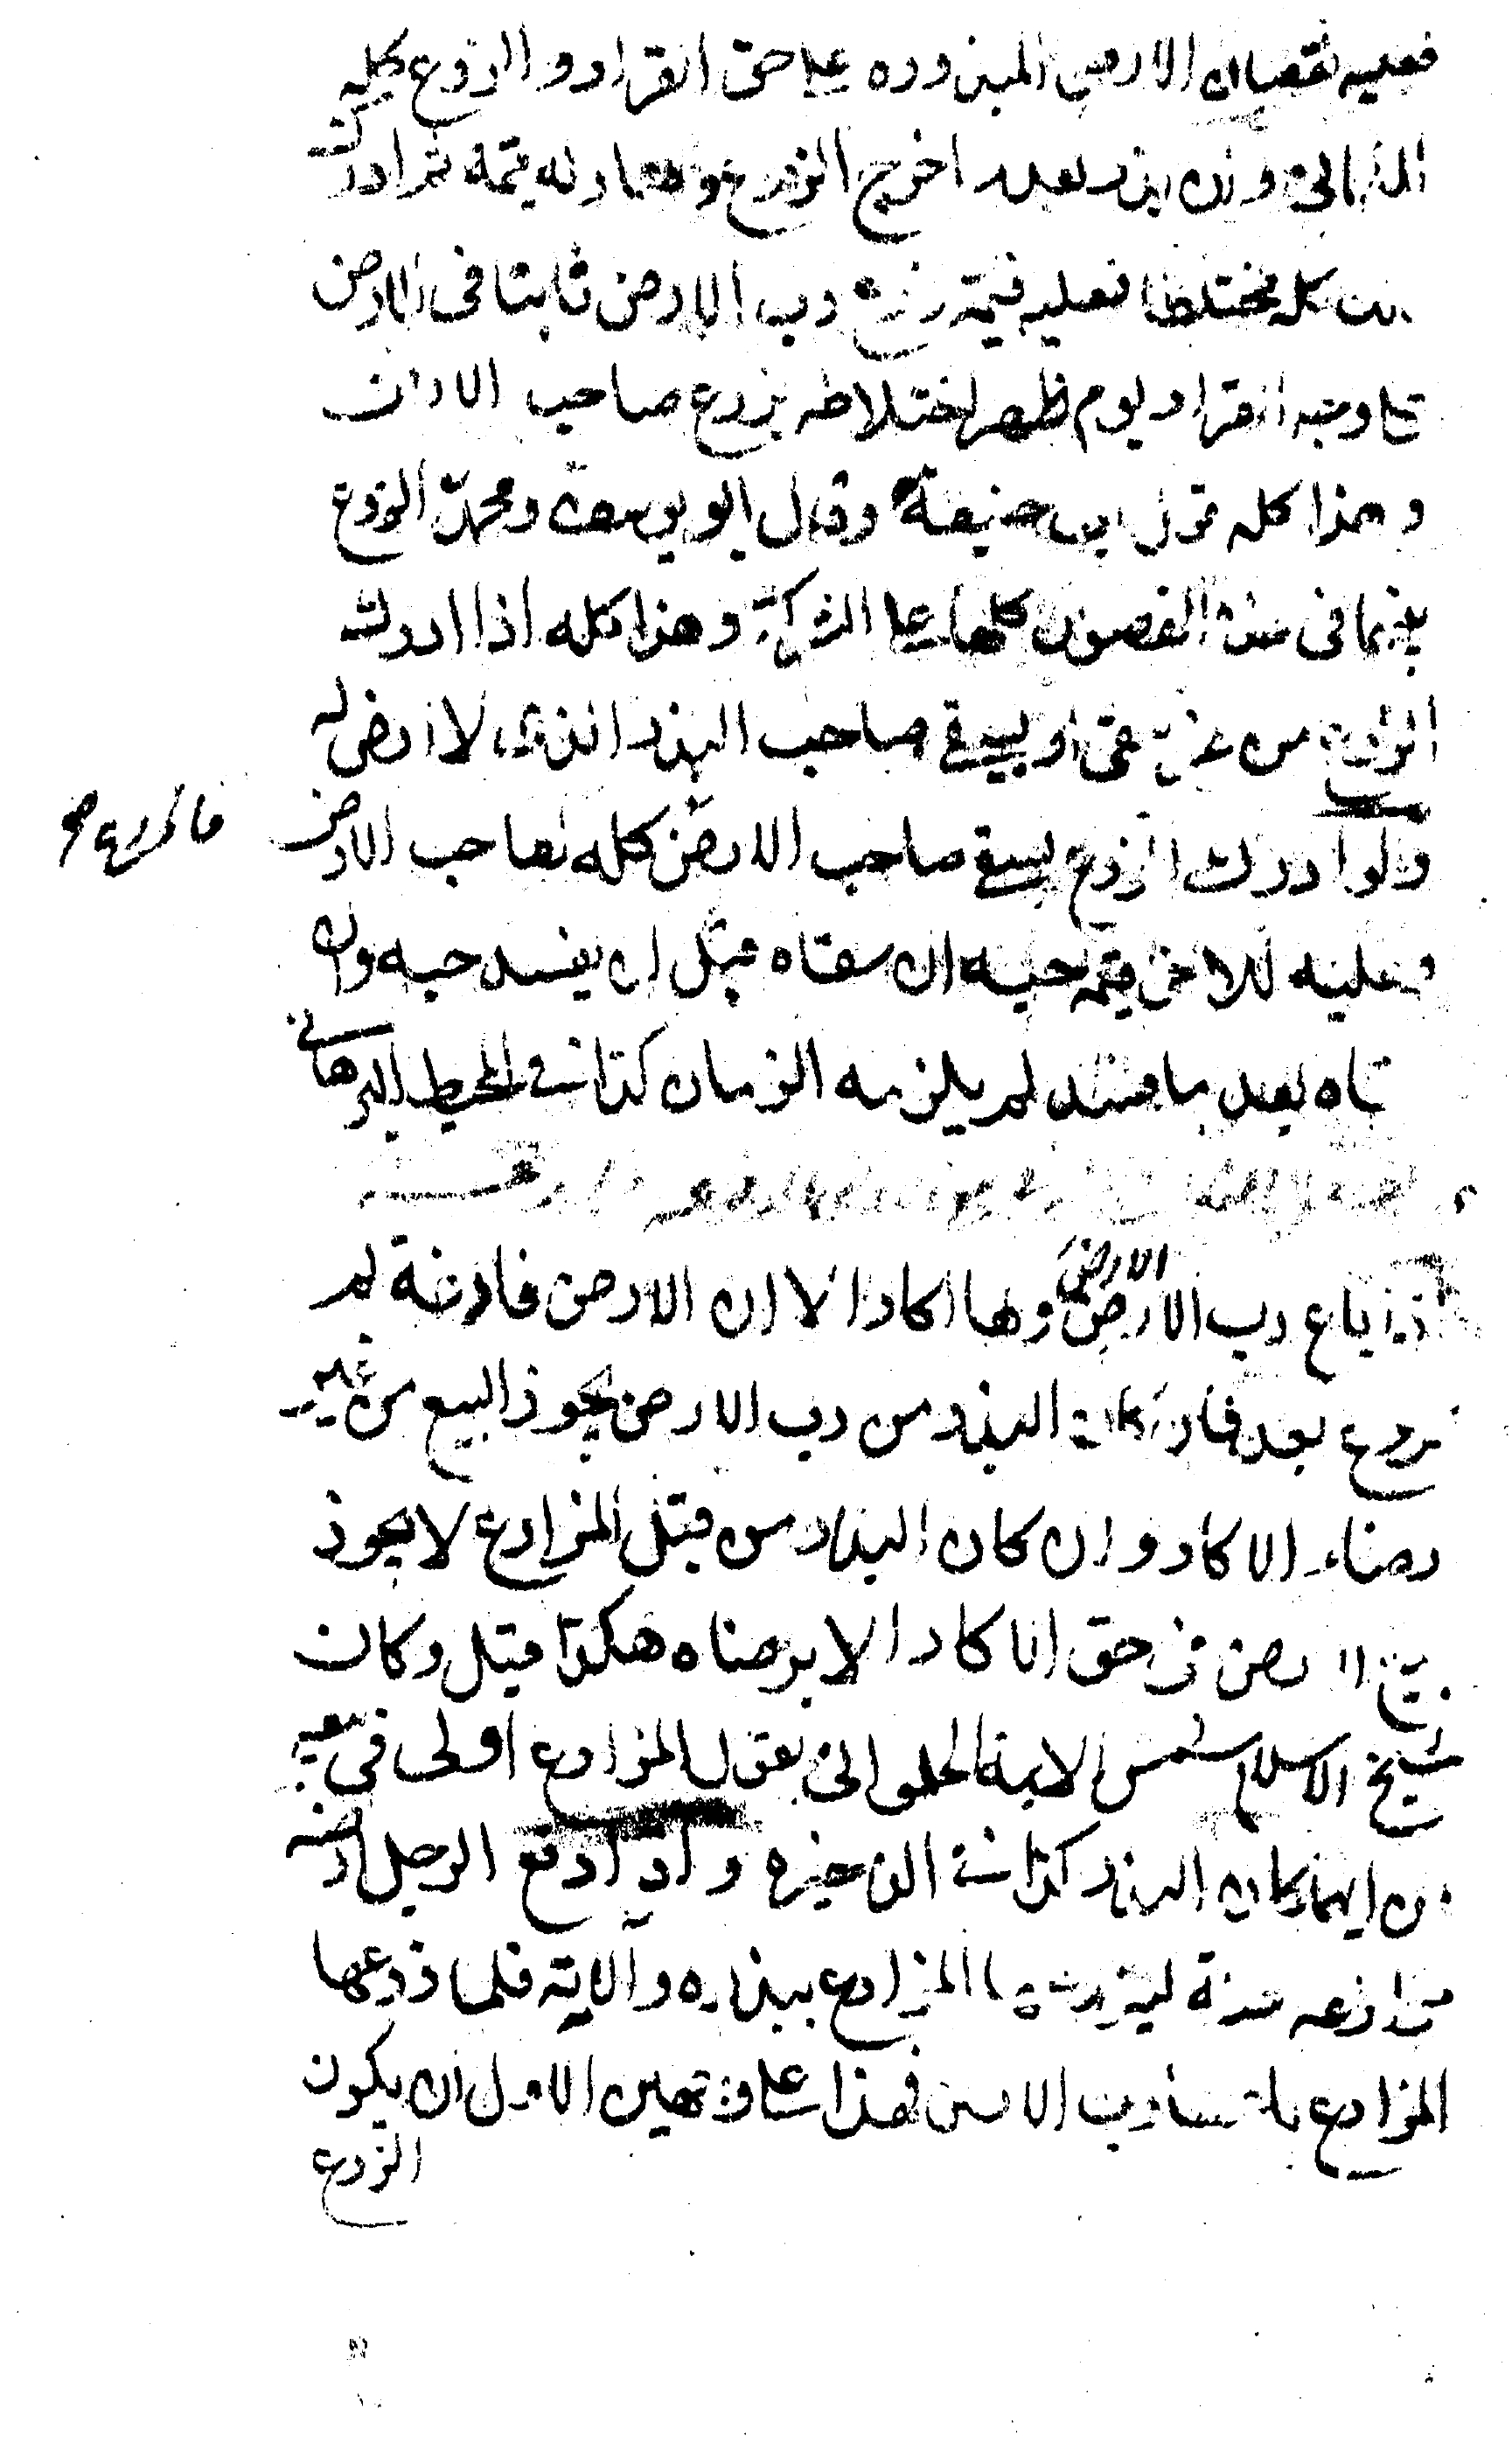 فعليه نقصان الارض المبذوره على حق القرار والزرع كله
للثانى وان بذر بعد اخرج الزرع وصار له قيمة ثم ادرك
كله مختلطا فعليه قيمة زرع رب الارض ثابتا فى الارض
على وجه القرار يوم ظهر اختلاطه بزرع صاحب الارض
وهذا كله قول ابى حنيفة وقال ابو يوسف ومحمد الزرع
بينهما فى هذه الفصول كلها على الشركة وهذا كله اذا ادرك
الزرع من غير سقى او بسقى صاحب البذر الذى لا ارض له
ولو ادرك الزرع بسقى صاحب الارض كله لصاحب الارض
فالزرع
وعليه للاخر قيمة حبه ان سقاه قبل ان يفسد حبه وان
سقاه بعد ما فسد لم يلزمه الضمان كذا فى المحيط البرهانى
الارض
اذا باع رب الارض ولها اكار الا ان الارض فارغة لم
يزرع بعد فان كان البذر من رب الارض يجوز البيع من غير
رضاء الاكار وان كان البذر من قبل المزارع لا يجوز
بيع الارض فى حق الاكار الا برضاه هكذا قيل وكان
شيخ الاسلام شمس الايمة الحلوانى يقول المزارع اولى فى
من ايهما كان البذر كذا فى الذخيره واذا دفع الرجل ارضه
مزارعه سنة ليزرعها المزارع ببذره وآلاته فلما زرعها
المزارع باع رب الارض فهذا على وجهين الاول ان يكون
الزرع